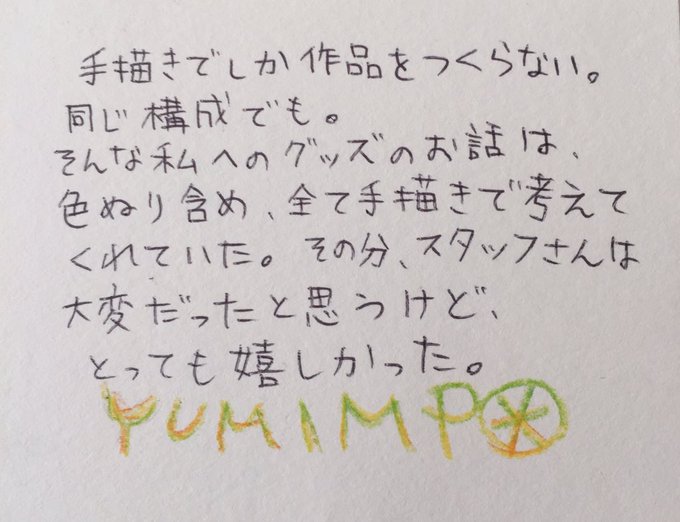 手描きでしか作品をつくらない。
同じ構成でも。
そんな私へのグッズのお話は、
色ぬり含め、全て手描きで考えて
くれていた。その分、スタッフさんは
大変だったと思うけど、
とっても嬉しかった。
YUMIMPO